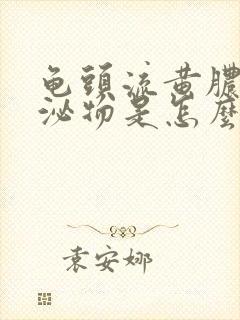 龟頭流黄膿
泌物是怎麼
袁安娜